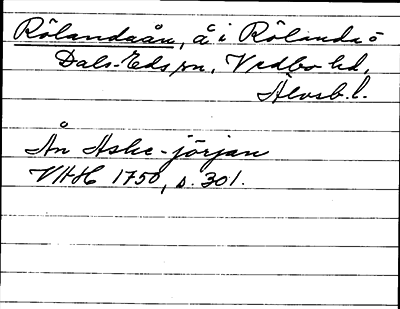 Rölandaån, å i Rölanda ö
Dals-Eds sn, Vedbo hd,
Älvsb. l.
Ån Aske-jörjan
VHH 1750, s. 301.